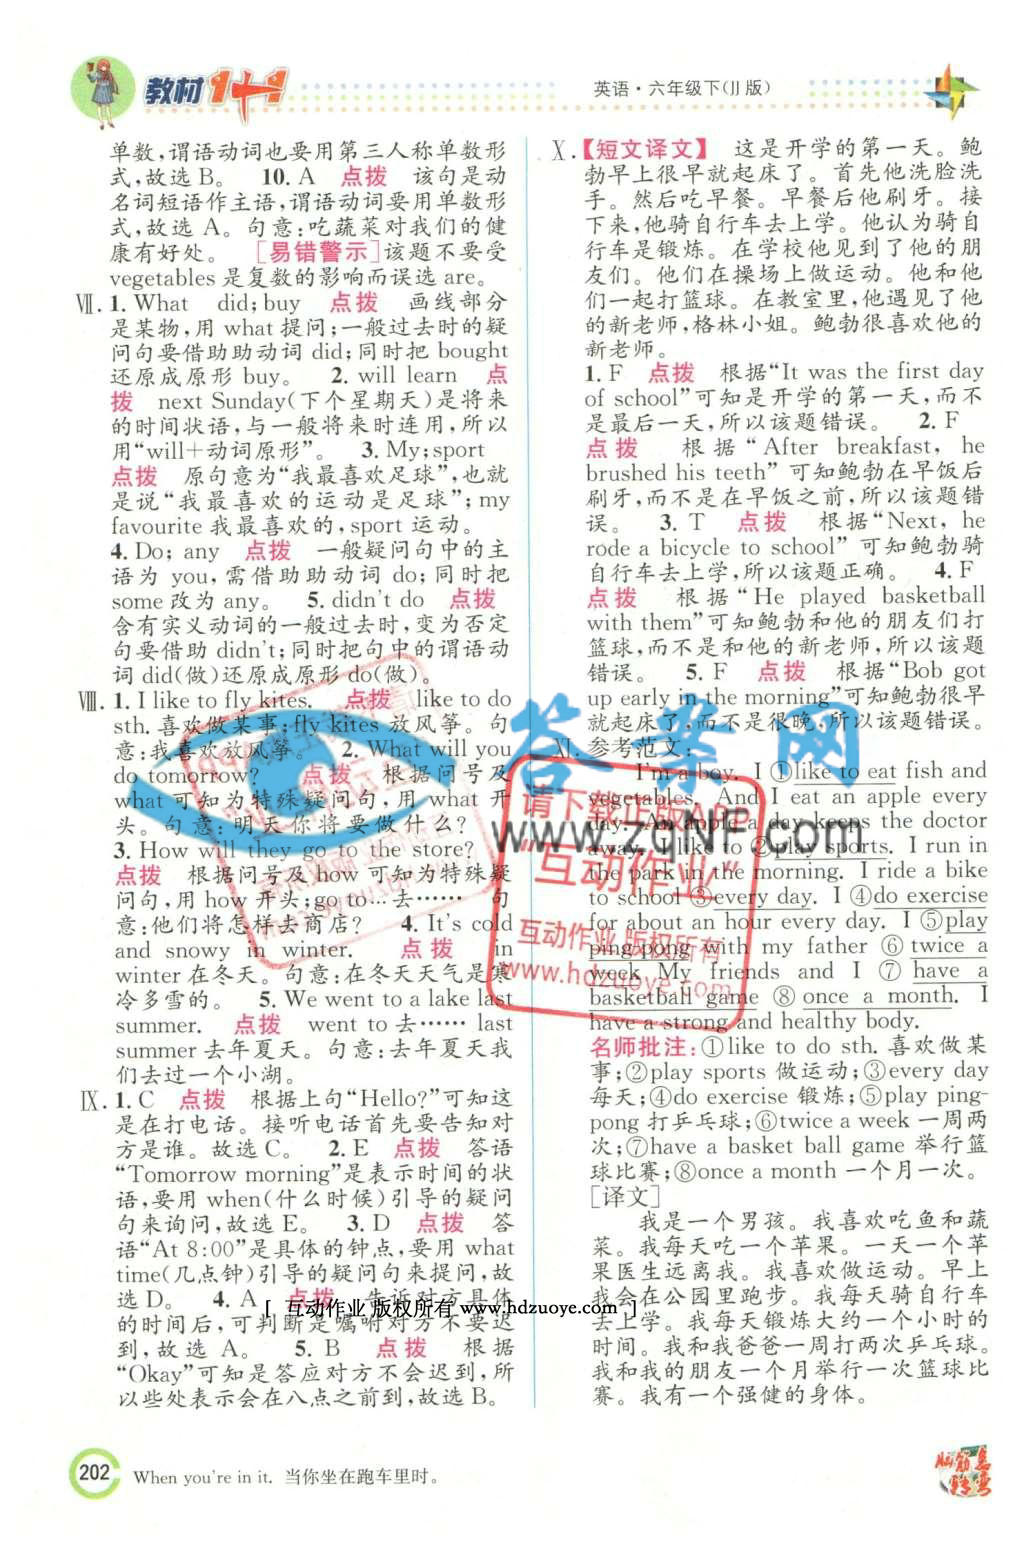 教材1+1
英语·六年级下(JJ版)
单数,谓语动词也要用第三人称单数形
式,故选B。 10. A 点拨 该句是动
名词短语作主语,谓语动词要用单数形
式,故选 A。句意:吃蔬菜对我们的健
康有好处。 [易错警示]该题不要受
vegetables 是复数的影响而误选 are。
Ⅶ. 1. What did; buy 点拨 画线部分
是某物,用 what 提问;一般过去时的疑
问句要借助助动词 did;同时把 bought
还原成原形 buy。 2. will learn 点
拨 next Sunday(下个星期天)是将来
的时间状语,与一般将来时连用,所以
用“will+动词原形”。 3. My;sport
点拨 原句意为“我最喜欢足球”,也就
是说“我最喜欢的运动是足球”;my
favourite 我最喜欢的,sport 运动。
4. Do; any 点拨 一般疑问句中的主
语为 you,需借助助动词 do;同时把
some 改为 any。 5. didn't do 点拨
含有实义动词的一般过去时,变为否定
句要借助 didn't;同时把句中的谓语动
词 did(做)还原成原形 do(做)。
Ⅷ. 1. I like to fly kites. 点拨 like to do
sth. 喜欢做某事;fly kites 放风筝。句
意:我喜欢放风筝。 2. What will you
do tomorrow? 点拨 根据问号及
what 可知为特殊疑问句,用 what 开
头。句意:明天你将要做什么?
3. How will they go to the store?
点拨 根据问号及 how 可知为特殊疑
问句,用 how 开头;go to…去…… 句
意:他们将怎样去商店? 4. It's cold
and snowy in winter. 点拨 in
winter 在冬天。句意:在冬天天气是寒
冷多雪的。 5. We went to a lake last
summer. 点拨 went to 去…… last
summer 去年夏天。句意:去年夏天我
们去过一个小湖。
Ⅸ. 1. C 点拨 根据上句“Hello?”可知这
是在打电话。接听电话首先要告知对
方是谁。故选 C。 2. E 点拨 答语
“Tomorrow morning”是表示时间的状
语,要用 when(什么时候)引导的疑问
句来询问,故选 E。 3. D 点拨 答
语“At 8:00”是具体的钟点,要用 what
time(几点钟)引导的疑问句来提问,故
选 D。 4. A 点拨 告诉对方具体
的时间后,可判断是嘱咐对方不要迟
到,故选 A。 5. B 点拨 根据
“Okay”可知是答应对方不会迟到,所
以些处表示会在八点之前到,故选 B。
Ⅹ. 【短文译文】 这是开学的第一天。鲍
勃早上很早就起床了。首先他洗脸洗
手。然后吃早餐。早餐后他刷牙。接
下来,他骑自行车去上学。他认为骑自
行车是锻炼。在学校他见到了他的朋
友们。他们在操场上做运动。他和他
们一起打篮球。在教室里,他遇见了他
的新老师,格林小姐。鲍勃很喜欢他的
新老师。
1. F 点拨 根据“It was the first day
of school”可知是开学的第一天,而不
是最后一天,所以该题错误。 2. F
点拨 根据“After breakfast, he
brushed his teeth”可知鲍勃在早饭后
刷牙,而不是在早饭之前,所以该题错
误。 3. T 点拨 根据“Next, he
rode a bicycle to school”可知鲍勃骑
自行车去上学,所以该题正确。 4. F
点拨 根据“He played basketball
with them”可知鲍勃和他的朋友们打
篮球,而不是和他的新老师,所以该题
错误。 5. F 点拨 根据“Bob got
up early in the morning”可知鲍勃很早
就起床了,而不是很晚,所以该题错误。
Ⅺ. 参考范文:
I'm a boy. I ①like to eat fish and
vegetables. And I eat an apple every
day. An apple a day keeps the doctor
away. I like to ②play sports. I run in
the park in the morning. I ride a bike
to school ③every day. I ④do exercise
for about an hour every day. I ⑤play
ping-pong with my father ⑥twice a
week. My friends and I ⑦have a
basketball game ⑧once a month. I
have a strong and healthy body.
名师批注:①like to do sth. 喜欢做某
事;②play sports 做运动;③every day
每天;④do exercise 锻炼;⑤play ping-
pong 打乒乓球;⑥twice a week 一周两
次;⑦have a basket ball game 举行篮
球比赛;⑧once a month 一个月一次。
[译文]
我是一个男孩。我喜欢吃鱼和蔬
菜。我每天吃一个苹果。一天一个苹
果医生远离我。我喜欢做运动。早上
我会在公园里跑步。我每天骑自行车
去上学。我每天锻炼大约一个小时的
时间。我和我爸爸一周打两次乒乓球。
我和我的朋友一个月举行一次篮球比
赛。我有一个强健的身体。
答案网
www.zqnf.com
请下载正版APP
“互动作业”
互动作业 版权所有
www.hdzuoye.com
[ 互动作业 版权所有 www.hdzuoye.com ]
202
When you're in it. 当你坐在跑车里时。
脑筋急转弯